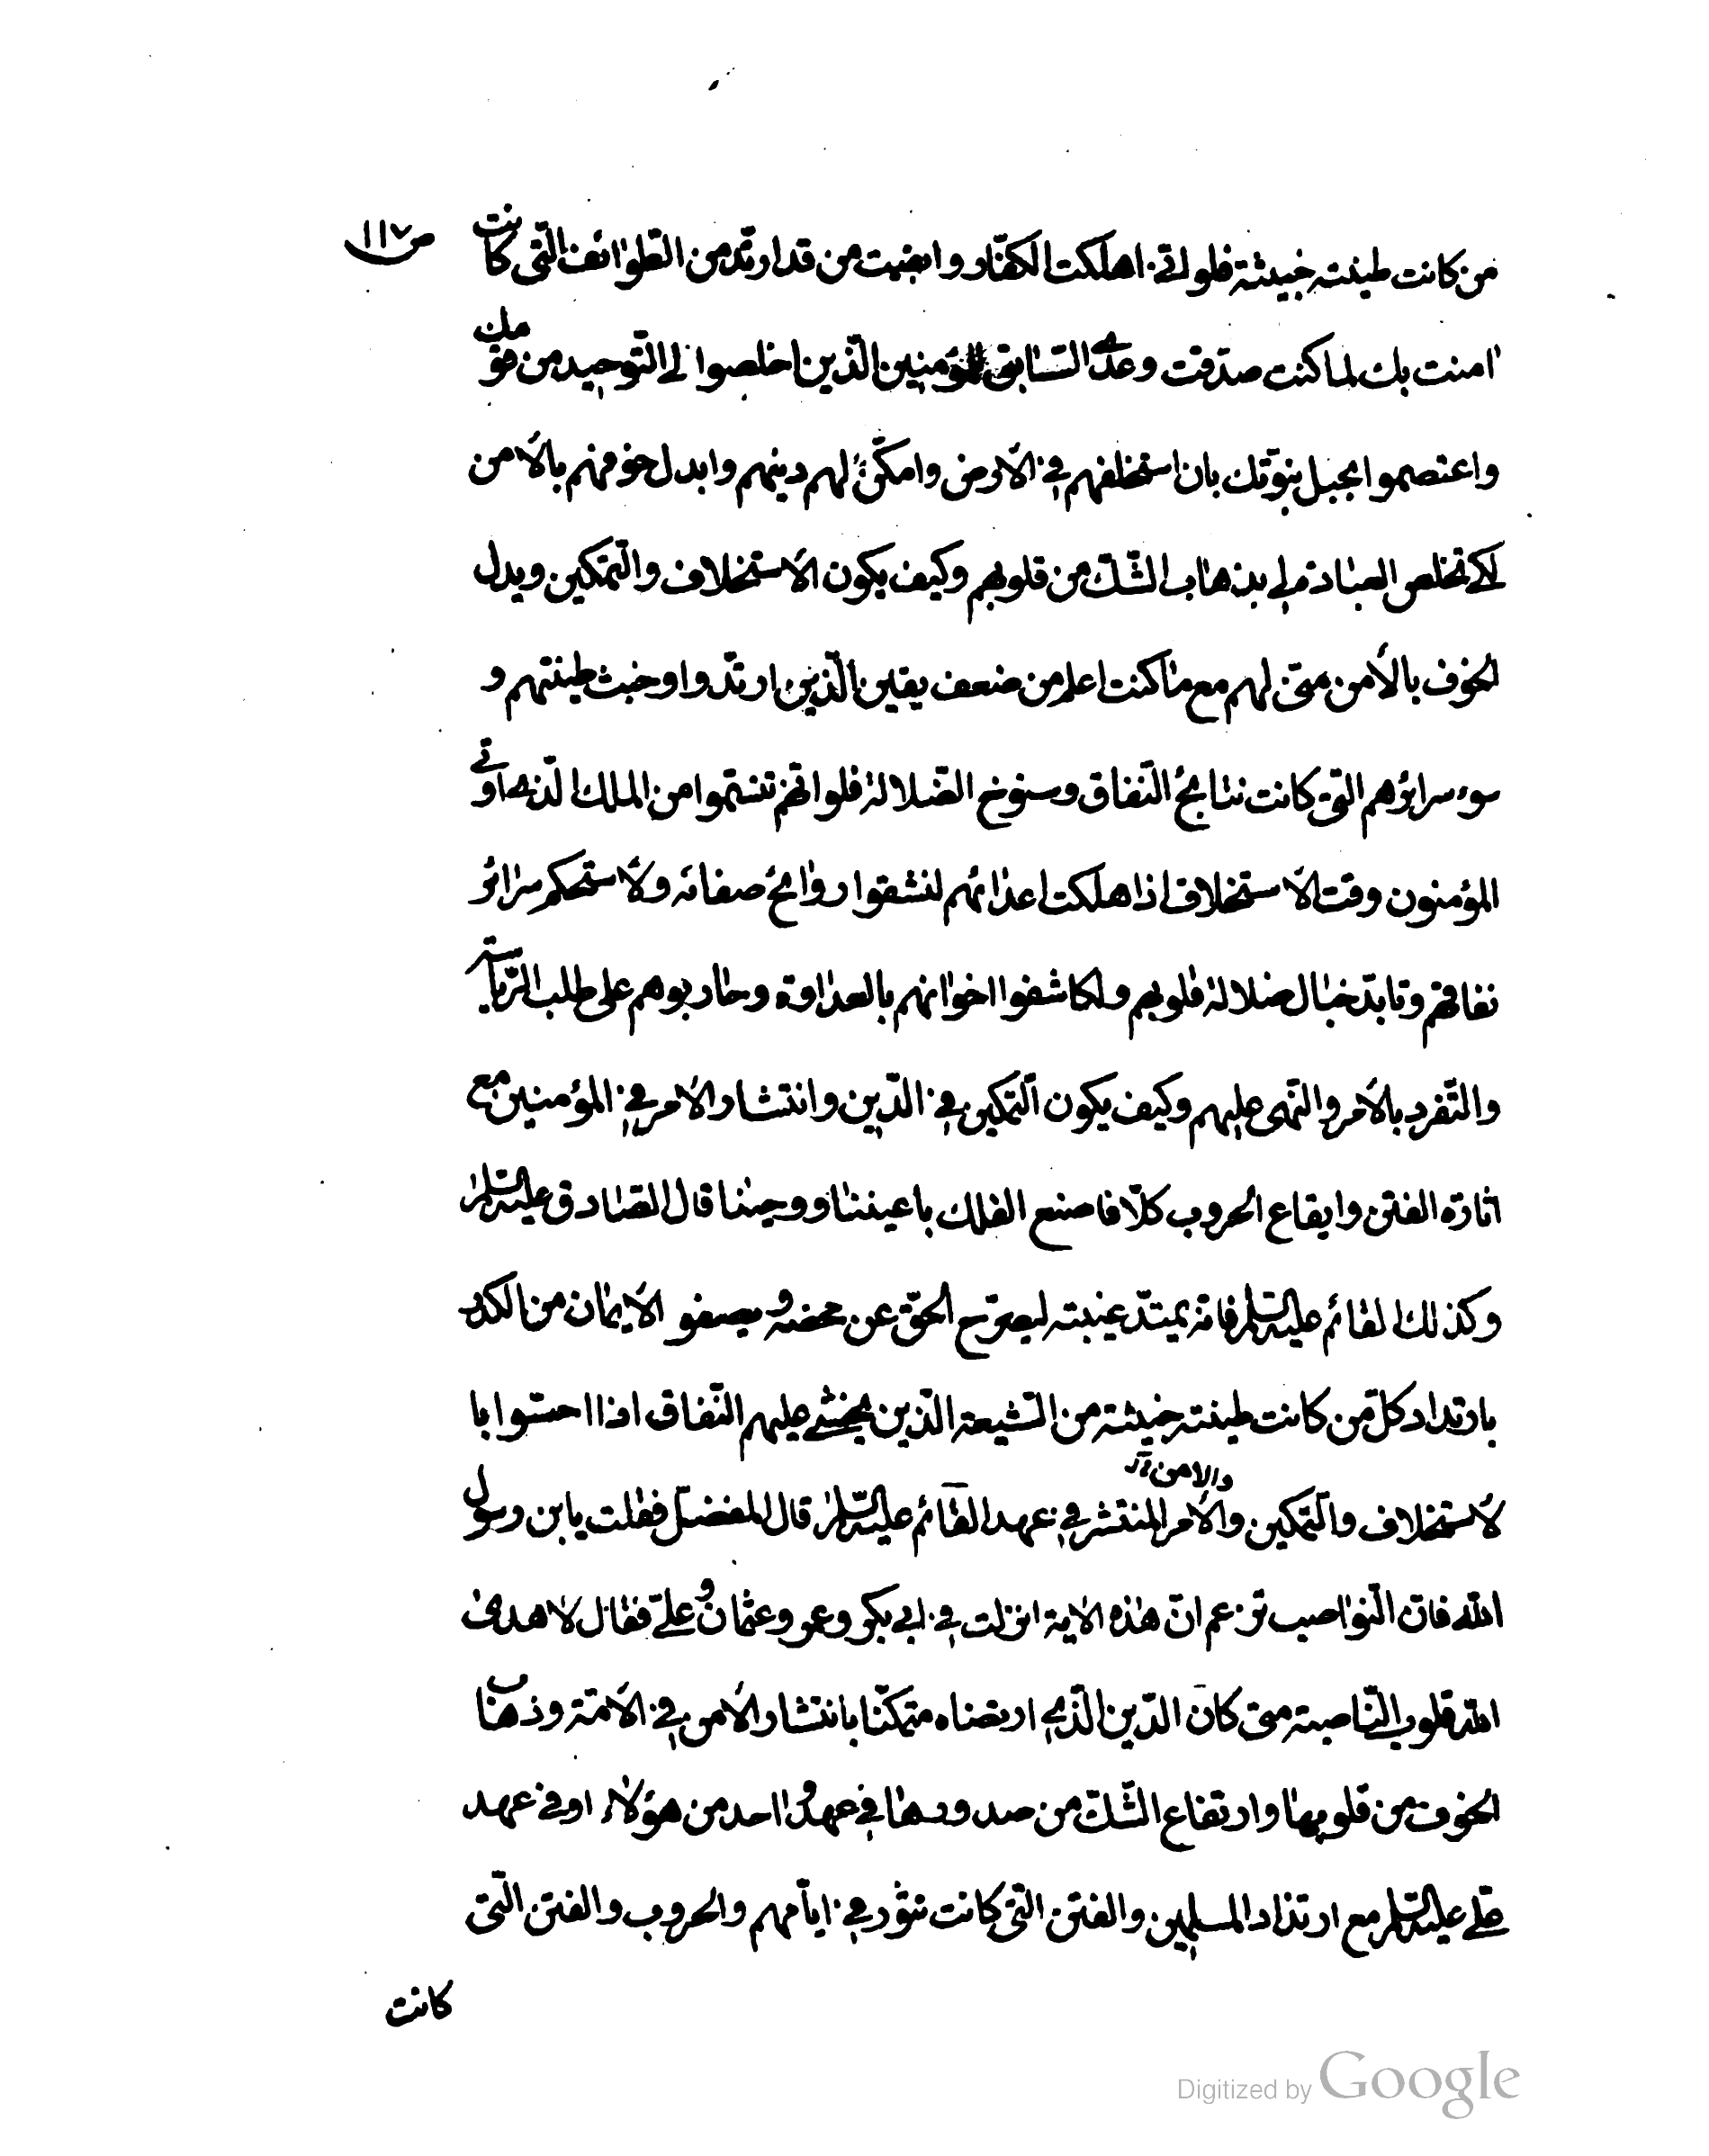 ص ١١٧
من كانت طينته خبيثة فلو انّي اهلكت الكفّار وابقيت من قد ارتدّ من الطوائف الّتي كانت
امنت بك لما كنت صدقت وعدي السّابق للمؤمنين الّذين اخلصوا لي التّوحيد من قومك
واعتصموا بحبل نبوّتك بان استخلفهم في الأرض وامكّن لهم دينهم وابدل خوفهم بالأمن
لكي تخلص العبادة لي بذهاب الشّك من قلوبهم وكيف يكون الأستخلاف والتّمكين وبدل
الخوف بالأمن منّي لهم مع ما كنت اعلم من ضعف يقين الّذين ارتدّوا وخبث طينتهم و
سوء سرائرهم الّتي كانت نتائج النّفاق وسنوخ الضّلالة فلو انّهم تنسّموا من الملك الّذي اوتي
المؤمنون وقت الأستخلاف اذا هلكت اعدائهم لنشقوا روائح صفاته ولأستحكم سرائر
نفاقهم وتابد خبال ضلالة قلوبهم ولكاشفوا اخوانهم بالعداوة وحاربوهم على طلب الرّياسة
والتّفرد بالأمر والنّهى عليهم وكيف يكون التّمكين في الدّين وانتشار الأمر في المؤمنين مع
اثارة الفتن وايقاع الحروب كلّا فاصنع الفلك باعيننا ووحينا قال الصّادق عليه السّلام
وكذلك القائم عليه السّلام فانّه يمتدّ غيبته ليصرّح الحقّ عن محضه ويصفو الأيمان من الكدر
بارتداد كلّ من كانت طينته خبيثة من الشّيعة الّذين يخشى عليهم النّفاق اذا احسّوا با
والامن
لأستخلاف والتّمكين والأمر المنتشر في عهد القائم عليه السّلام قال المفضّل فقلت يابن رسول
الله فانّ النّواصب تزعم انّ هذه الاية انزلت في ابي بكر وعمر وعثمان وعليّ فقال لا هدى
الله قلوب النّاصبة متى كان الدّين الّذي ارتضاه متمكّنا بانتشار الأمن في الأمّة وذهاب
الخوف من قلوبها وارتفاع الشّكّ من صدورها في عهد واحد من هؤلاء او في عهد
علي عليه السّلام مع ارتداد المسلمين والفتن الّتي كانت تثور في ايّامهم والحروب والفتن الّتي
كانت
Digitized by Google